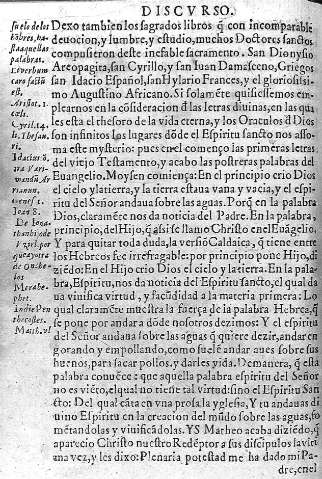 DISCVRSO.
Dexo tambien los sagrados libros q̃ con incomparable
deuocion, y lumbre, y estudio, muchos Doctores sanctos
compusieron deste inefable sacramento. San Dionysio
Areopagita, san Cyrillo, y san Iuan Damasceno, Griegos
san Idacio Español, san Hylario Frances, y el gloriosissi-
mo Augustino Africano. Si solamẽte quisiessemos em-
plearnos en la cõsideracion d̃ las letras diuinas, en las qua
les esta el thesoro de la vida eterna, y los Oraculos d̃ Dios
son infinitos los lugares dõde el Espiritu sancto nos asso-
ma este mysterio: pues en el comẽço las primeras letras
del viejo Testamento, y acabo las postreras palabras del
Euangelio. Moysen comiença: En el principio crio Dios
el cielo y la tierra, y la tierra estaua vana y vacia, y el espi-
ritu del Señor andaua sobre las aguas. Porq̃ en la palabra
Dios, claramẽte nos da noticia del Padre. En la palabra,
principio, del Hijo, q̃ assi se llamo Christo en el Euãgelio.
Y para quitar toda duda, la versiõ Caldaica, q̃ tiene entre
los Hebreos fee irrefragable: por principio pone Hijo, di-
ziẽdo: En el Hijo crio Dios el cielo y la tierra. En la pala-
bra, Espiritu, nos da noticia del Espiritu sancto, el qual da
ua viuifica virtud, y facũdidad a la materia primera: Lo
qual claramẽte muestra la fuerça de la palabra Hebrea, q̃
se pone por andara dõde nosotros dezimos: Y el espiritu
del Señor andaua sobre las aguas: q̃ quiere dezir, andar en
gorando y empollando, como suele andar aues sobre sus
hueuos, para sacar pollos, y darles vida. Demanera, q̃ esta
palabra conuẽce: que aquella palabra espiritu del Señor
no es viẽto, el qual no tiene tal virtud: sino el Espiritu San
cto: Del qual cãta en vna prosa la yglesia, Y tu andauas di
uino Espiritu en la creacion del mũdo sobre las aguas, fo
mẽtandolas y viuificãdolas. Y S. Matheo acaba diziẽdo, q̃
aparecio Christo nuestro Redẽptor a sus discipulos la vlti
ma vez, y les dixo: Plenaria potestad me ha dado mi Pa-
dre, en el